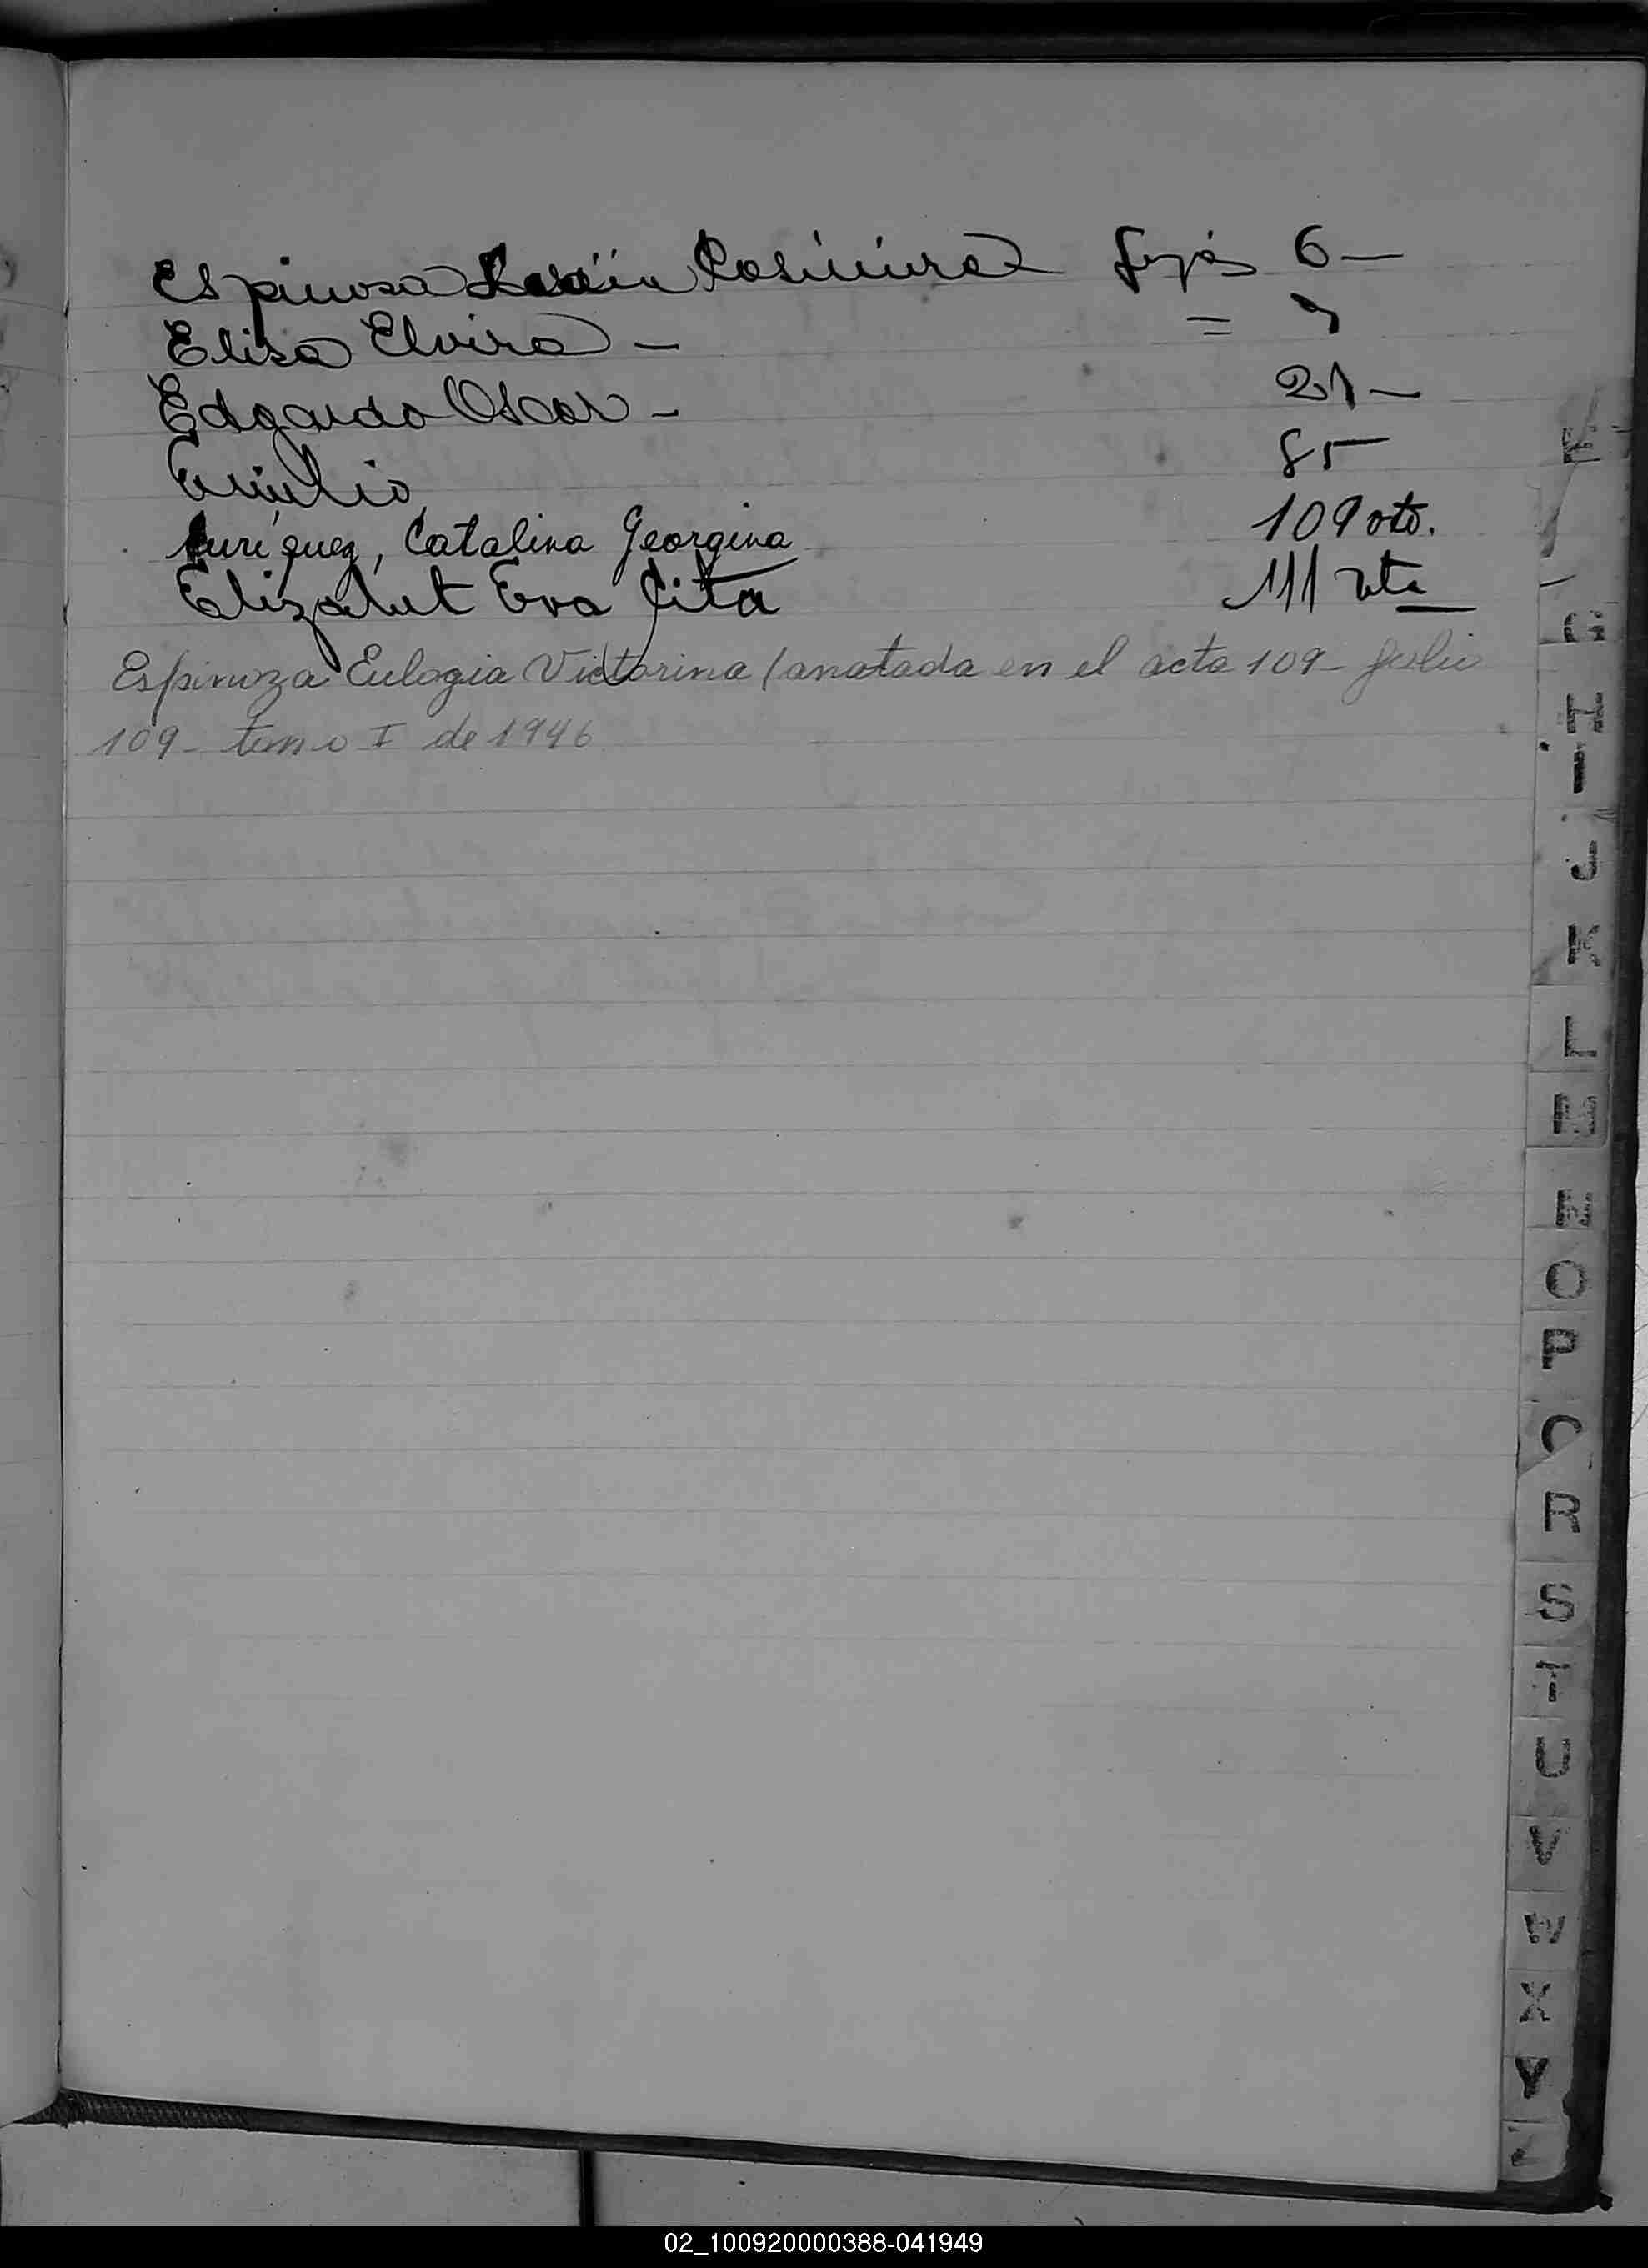 Espinosa Casimira Fojas 6 —
Elisa Elvira — = 9
Edgardo Oscar — 21 —
Emilio 85 —
Enriquez, Catalina Georgina 109 vto.
Elizabet Eva Rita 111 vta
Espinoza Eulogia Victorina (anotada en el acta 109 - folio
109 - tomo I de 1946
E
F
H
I
J
K
L
M
N
O
P
C
R
S
T
U
V
W
X
Y
02_100920000388-041949